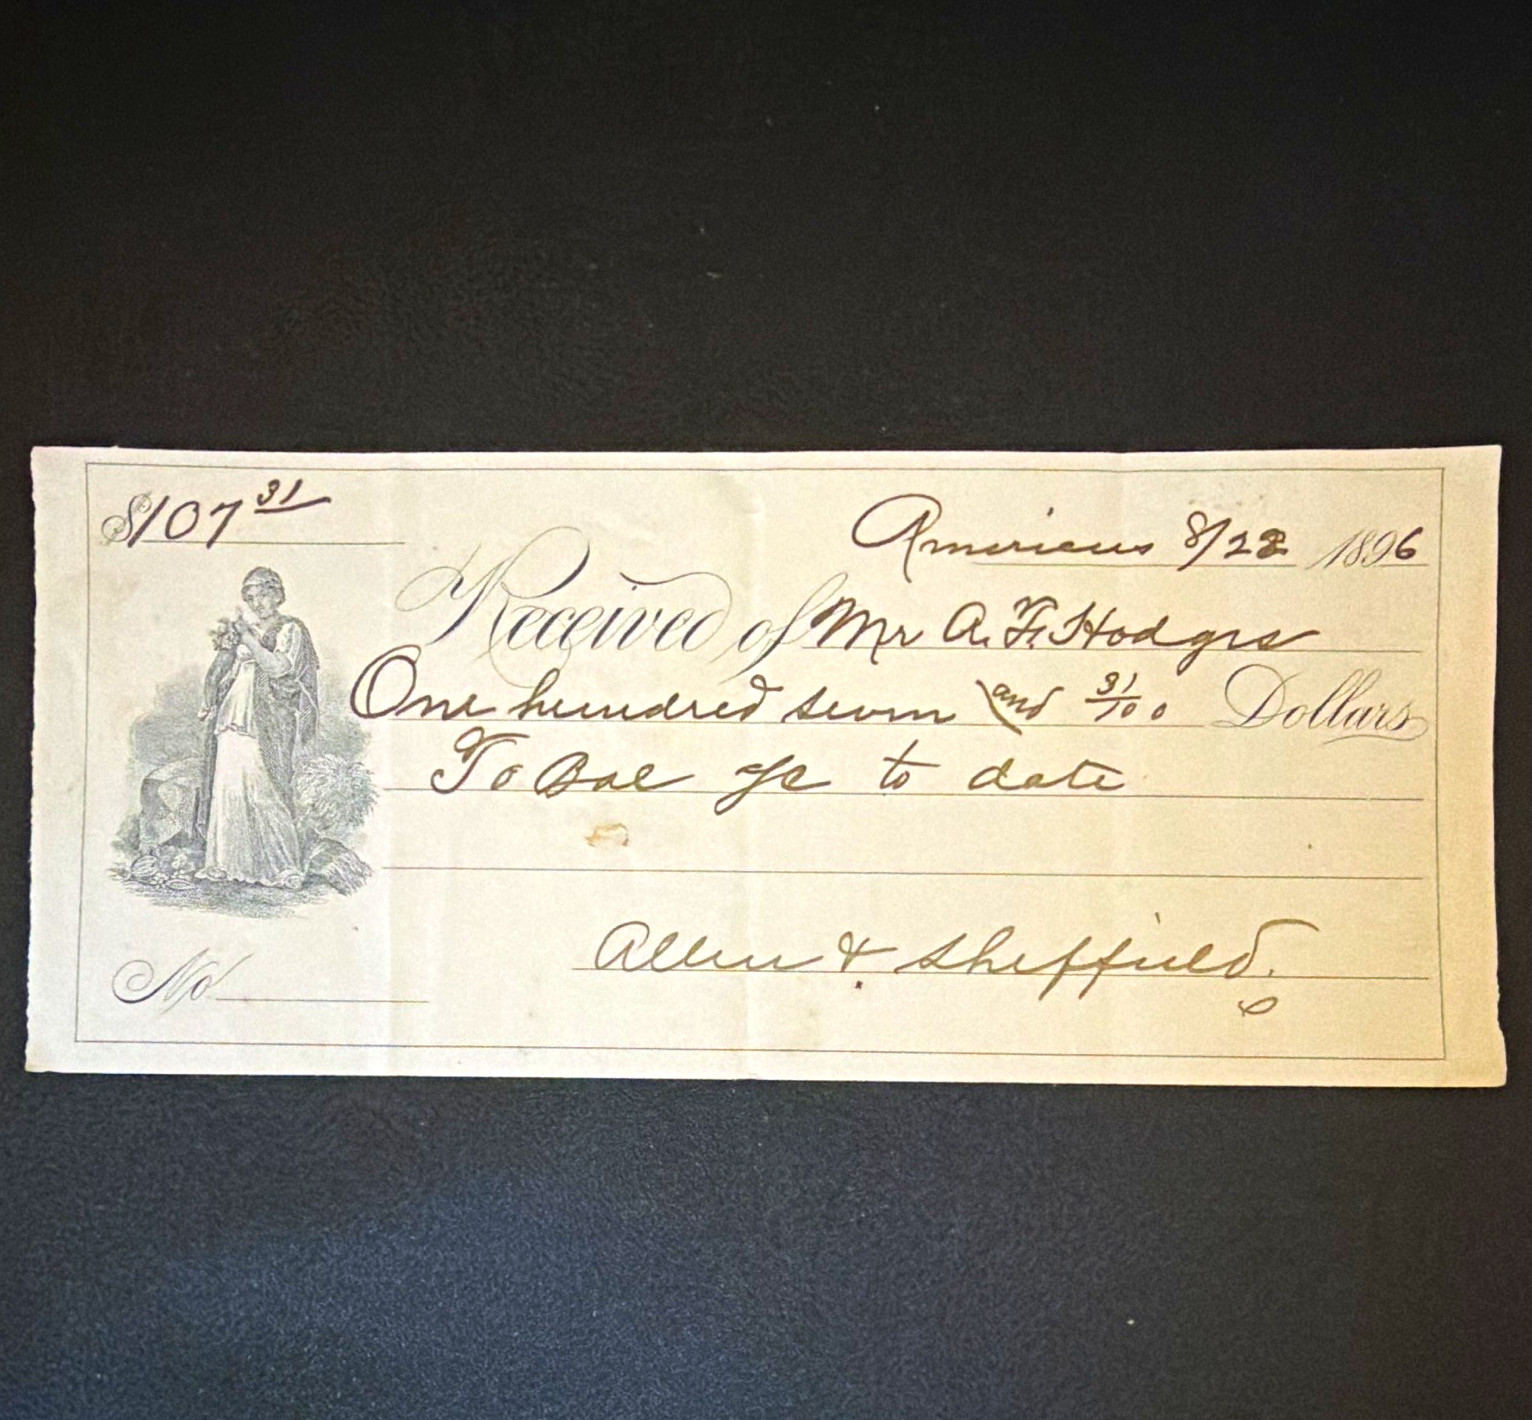 $107 31
Americus 8/28 1896
Received of Mr A. F. Hodges
One hundred seven and 31/100 Dollars
To Bal a/c to date
Allen & Sheffield.
No